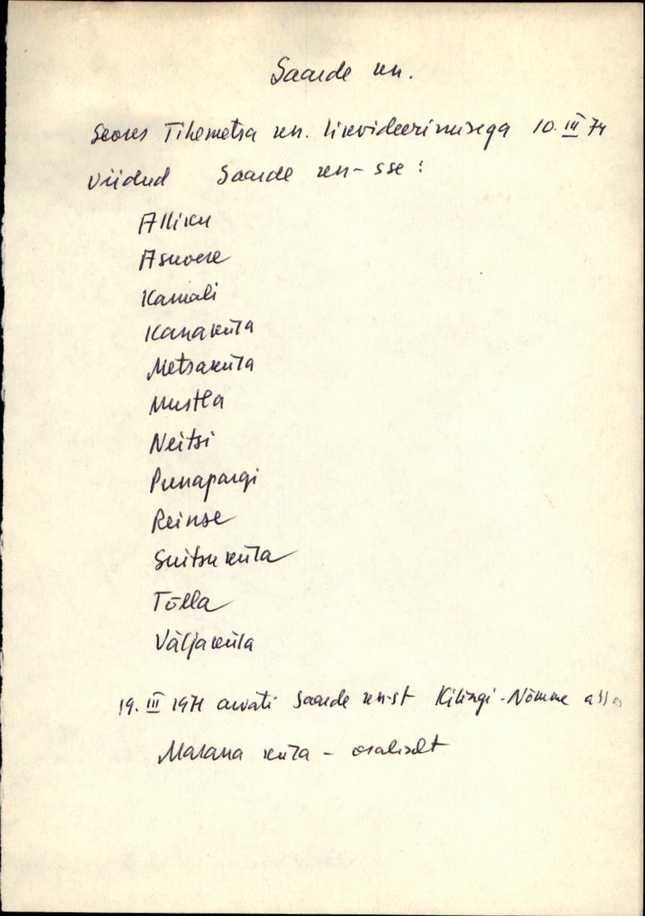 Saarde kn.
Seoses Tihemetsa kn. likvideerimisega 10. III 74
viidud Saarde kn-sse :
Alliku
Asuvere
Kamali
Kanaküla
Metsaküla
Mustla
Neitsi
Punapargi
Reinse
Suitsuküla
Tõlla
Väljaküla
19. III 1971 arvati Saarde kn-st Kilingi-Nõmme
Marana küla - osaliselt